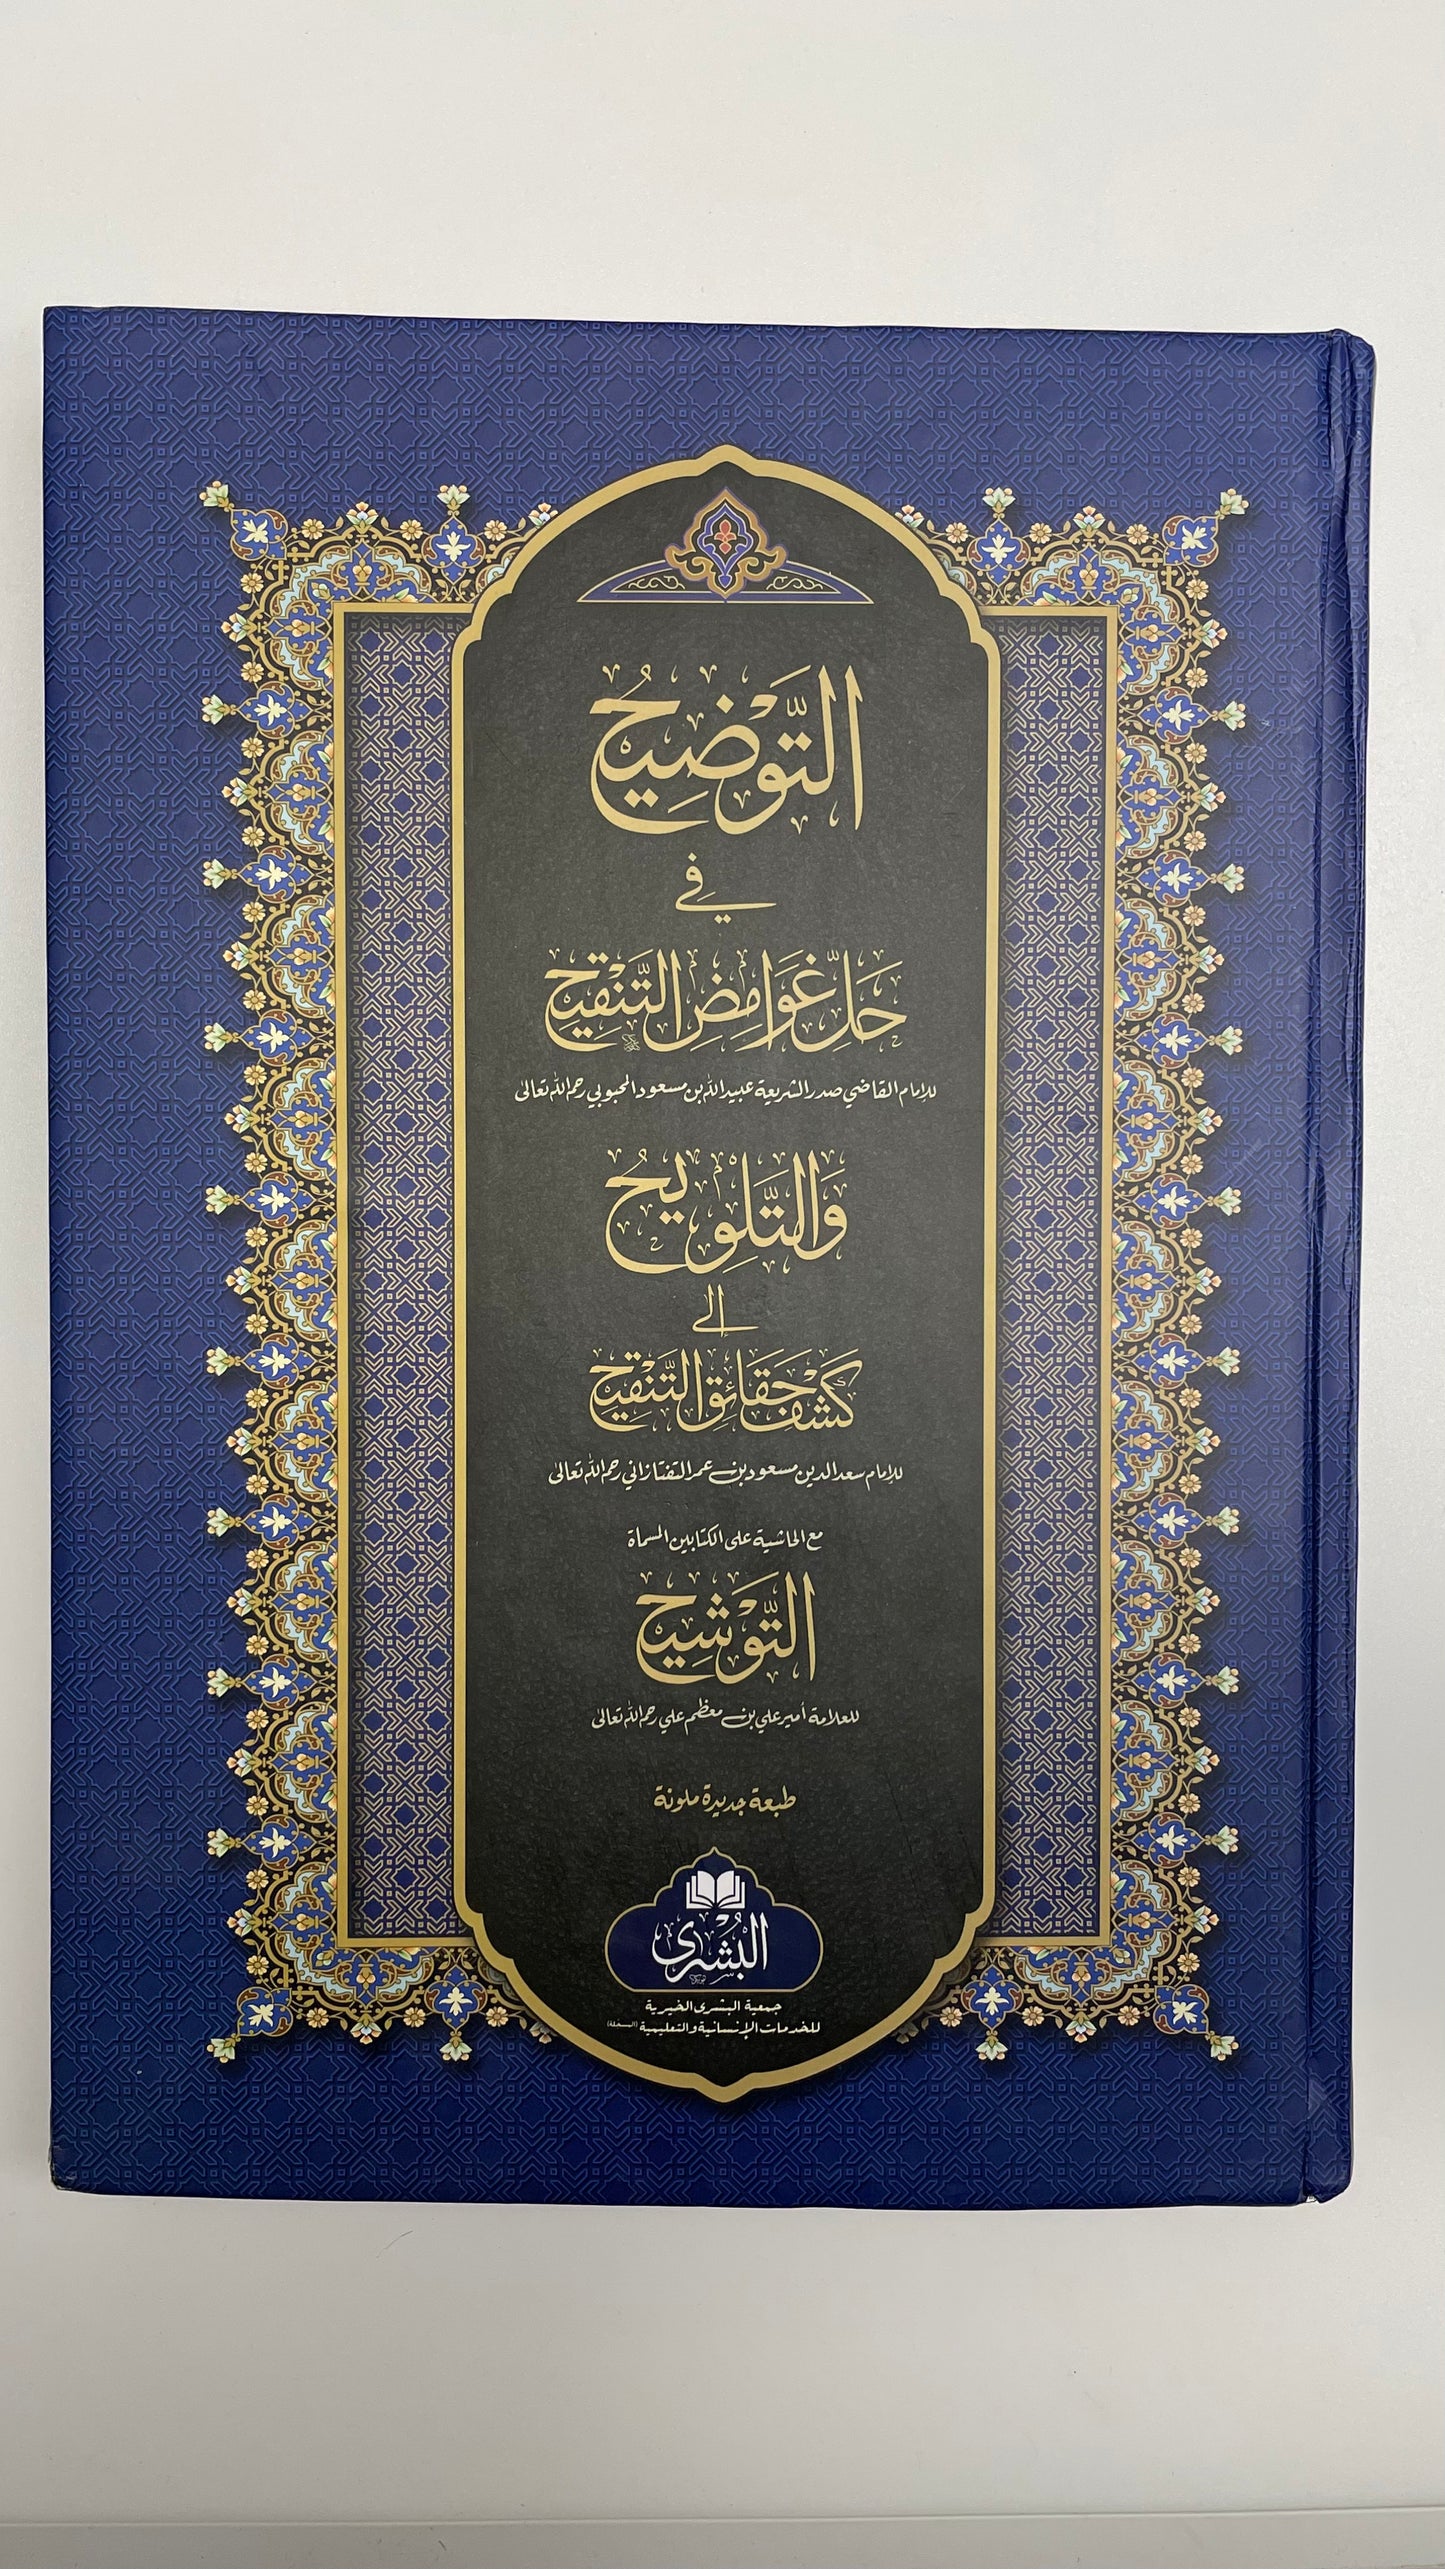 التَّوْضِيحُ
فِي
حَلِّ غَوَامِضِ التَّنْقِيحِ
للإمام القاضي صدر الشريعة عبيد الله بن مسعود المحبوبي رحمه الله تعالى
وَالتَّلْوِيحُ
إلى
كَشْفِ حَقَائِقِ التَّنْقِيحِ
للإمام سعد الدين مسعود بن عمر التفتازاني رحمه الله تعالى
مع الحاشية على الكتابين المسماة
التَّوْشِيحِ
للعلامة أمير علي بن معظم علي رحمه الله تعالى
طبعة جديدة ملونة
البُشْرَى
جمعية البشرى الخيرية
للخدمات الإنسانية والتعليمية (المسجلة)